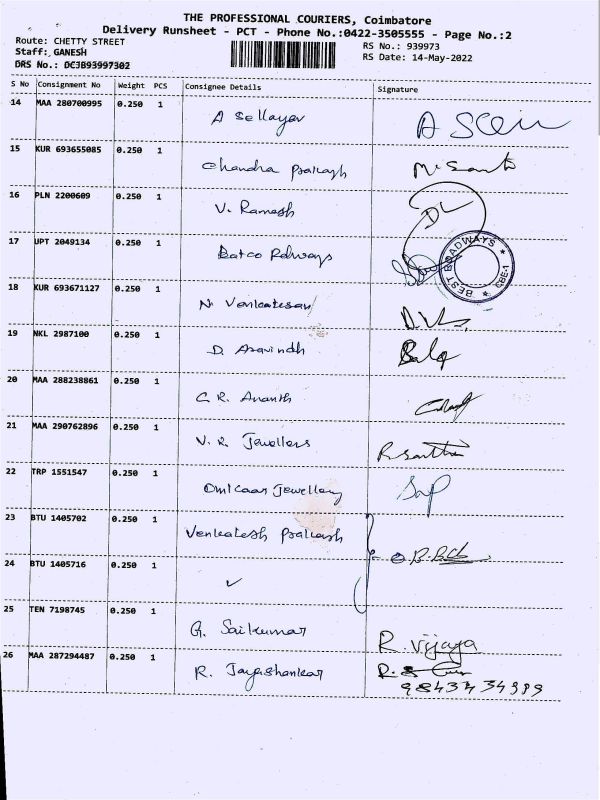 THE PROFESSIONAL COURIERS, Coimbatore
Delivery Runsheet - PCT - Phone No.:0422-3505555 - Page No.:2
Route: CHETTY STREET
Staff: GANESH
DRS No.: DCJB93997302
RS No.: 939973
RS Date: 14-May-2022
S No Consignment No Weight PCS Consignee Details Signature
14 MAA 280700995 0.250 1 A Sellayev
15 KUR 693655085 0.250 1 Chandra Prakash
16 PLN 2200609 0.250 1 V. Ramesh
17 UPT 2049134 0.250 1 Batco Rdways
BEST ROADWAYS CBE-1
18 KUR 693671127 0.250 1 N. Venkatesan
19 NKL 2987100 0.250 1 D. Aravindh Bala
20 MAA 288238861 0.250 1 C. R. Ananth
21 MAA 290762896 0.250 1 V. R. Jewellers R. santhi
22 TRP 1551547 0.250 1 Omkaar Jewellery
23 BTU 1405702 0.250 1 Venkatesh Prakash
24 BTU 1405716 0.250 1 ✓
25 TEN 7198745 0.250 1 G. Saikumar R. vijaya
26 MAA 287294487 0.250 1 R. Jayashankar
9843434989